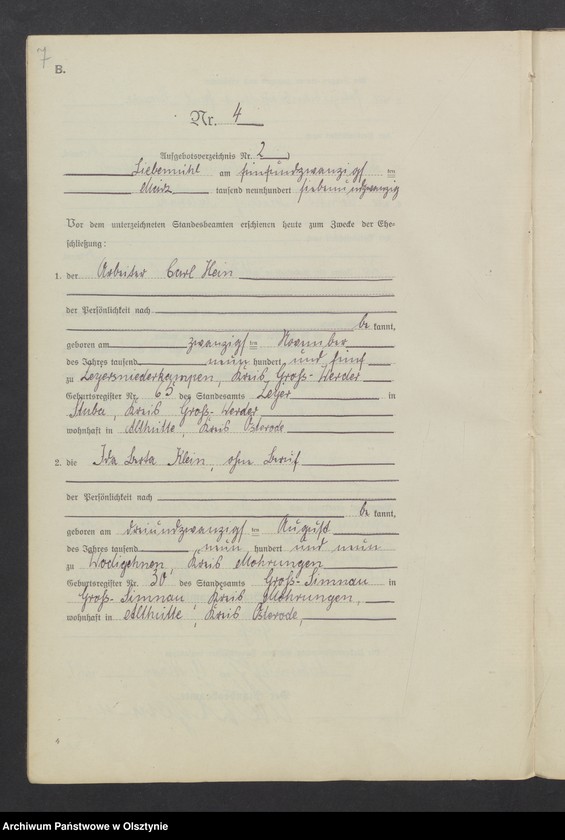 7
B.
Nr. 4
Aufgebotsverzeichnis Nr. 2
Liebemühl am fünfundzwanzigsten
März tausend neunhundert siebenundzwanzig
Vor dem unterzeichneten Standesbeamten erschienen heute zum Zwecke der Ehe-
schließung:
1. der Arbeiter Carl Hein
der Persönlichkeit nach
be kannt,
geboren am zwanzigsten November
des Jahres tausend neun hundert und fünf
zu Leyersniederkampen, Kreis Groß-Werder
Geburtsregister Nr. 65 des Standesamts Zeyer in
Stuba, Kreis Groß-Werder
wohnhaft in Althütte, Kreis Osterode
2. die Ida Berta Klein, ohne Beruf
der Persönlichkeit nach
be kannt,
geboren am dreiundzwanzigsten August
des Jahres tausend neun hundert und neun
zu Wodigehnen, Kreis Mohrungen
Geburtsregister Nr. 30 des Standesamts Groß-Simnau in
Groß-Simnau, Kreis Mohrungen,
wohnhaft in Althütte, Kreis Osterode,
4
Archiwum Państwowe w Olsztynie